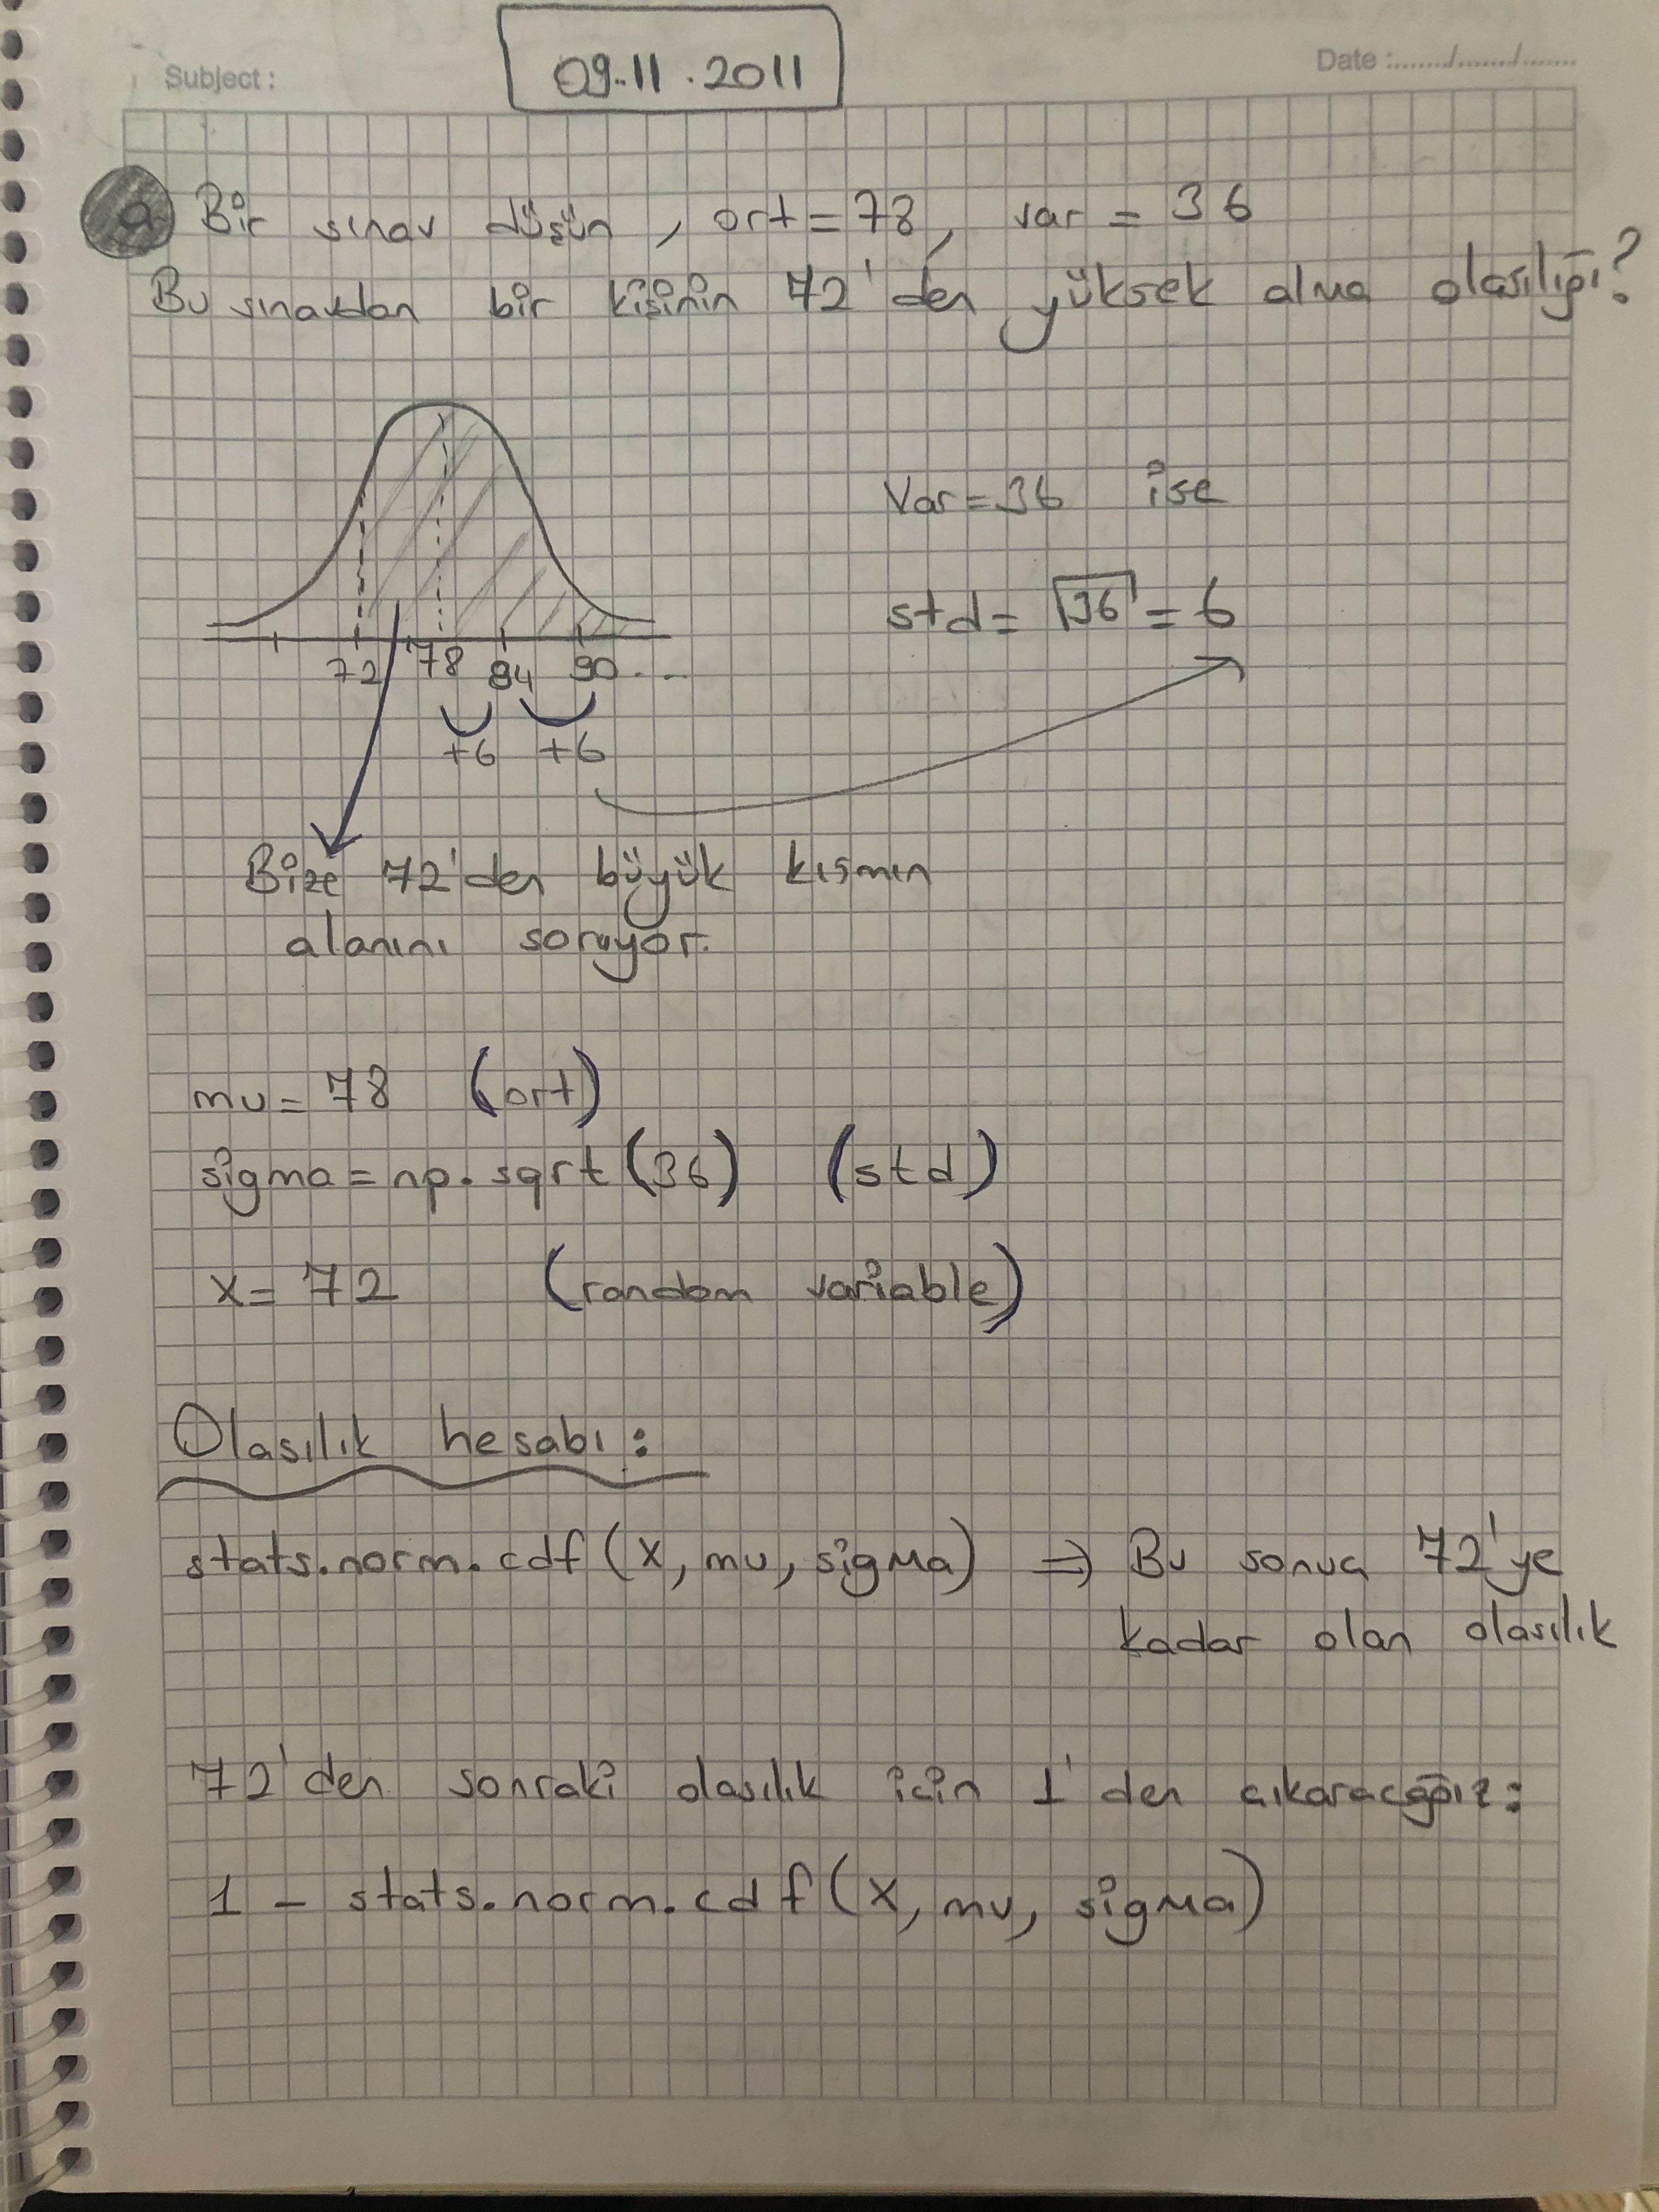 Subject :
09.11.2011
Date :......./......./.......
a) Bir sınav düşün, ort = 78, var = 36
Bu sınavdan bir kişinin 72'den yüksek alma olasılığı?
Var = 36 ise
std = √36 = 6
72 78 84 90...
+6 +6
Bize 72'den büyük kısmın
alanını soruyor.
mu = 78 (ort)
sigma = np.sqrt(36) (std)
x = 72 (random variable)
Olasılık hesabı:
stats.norm.cdf(x, mu, sigma) ⇒ Bu sonuç 72'ye
kadar olan olasılık
72'den sonraki olasılık için 1'den çıkaracğız:
1 - stats.norm.cdf(x, mu, sigma)